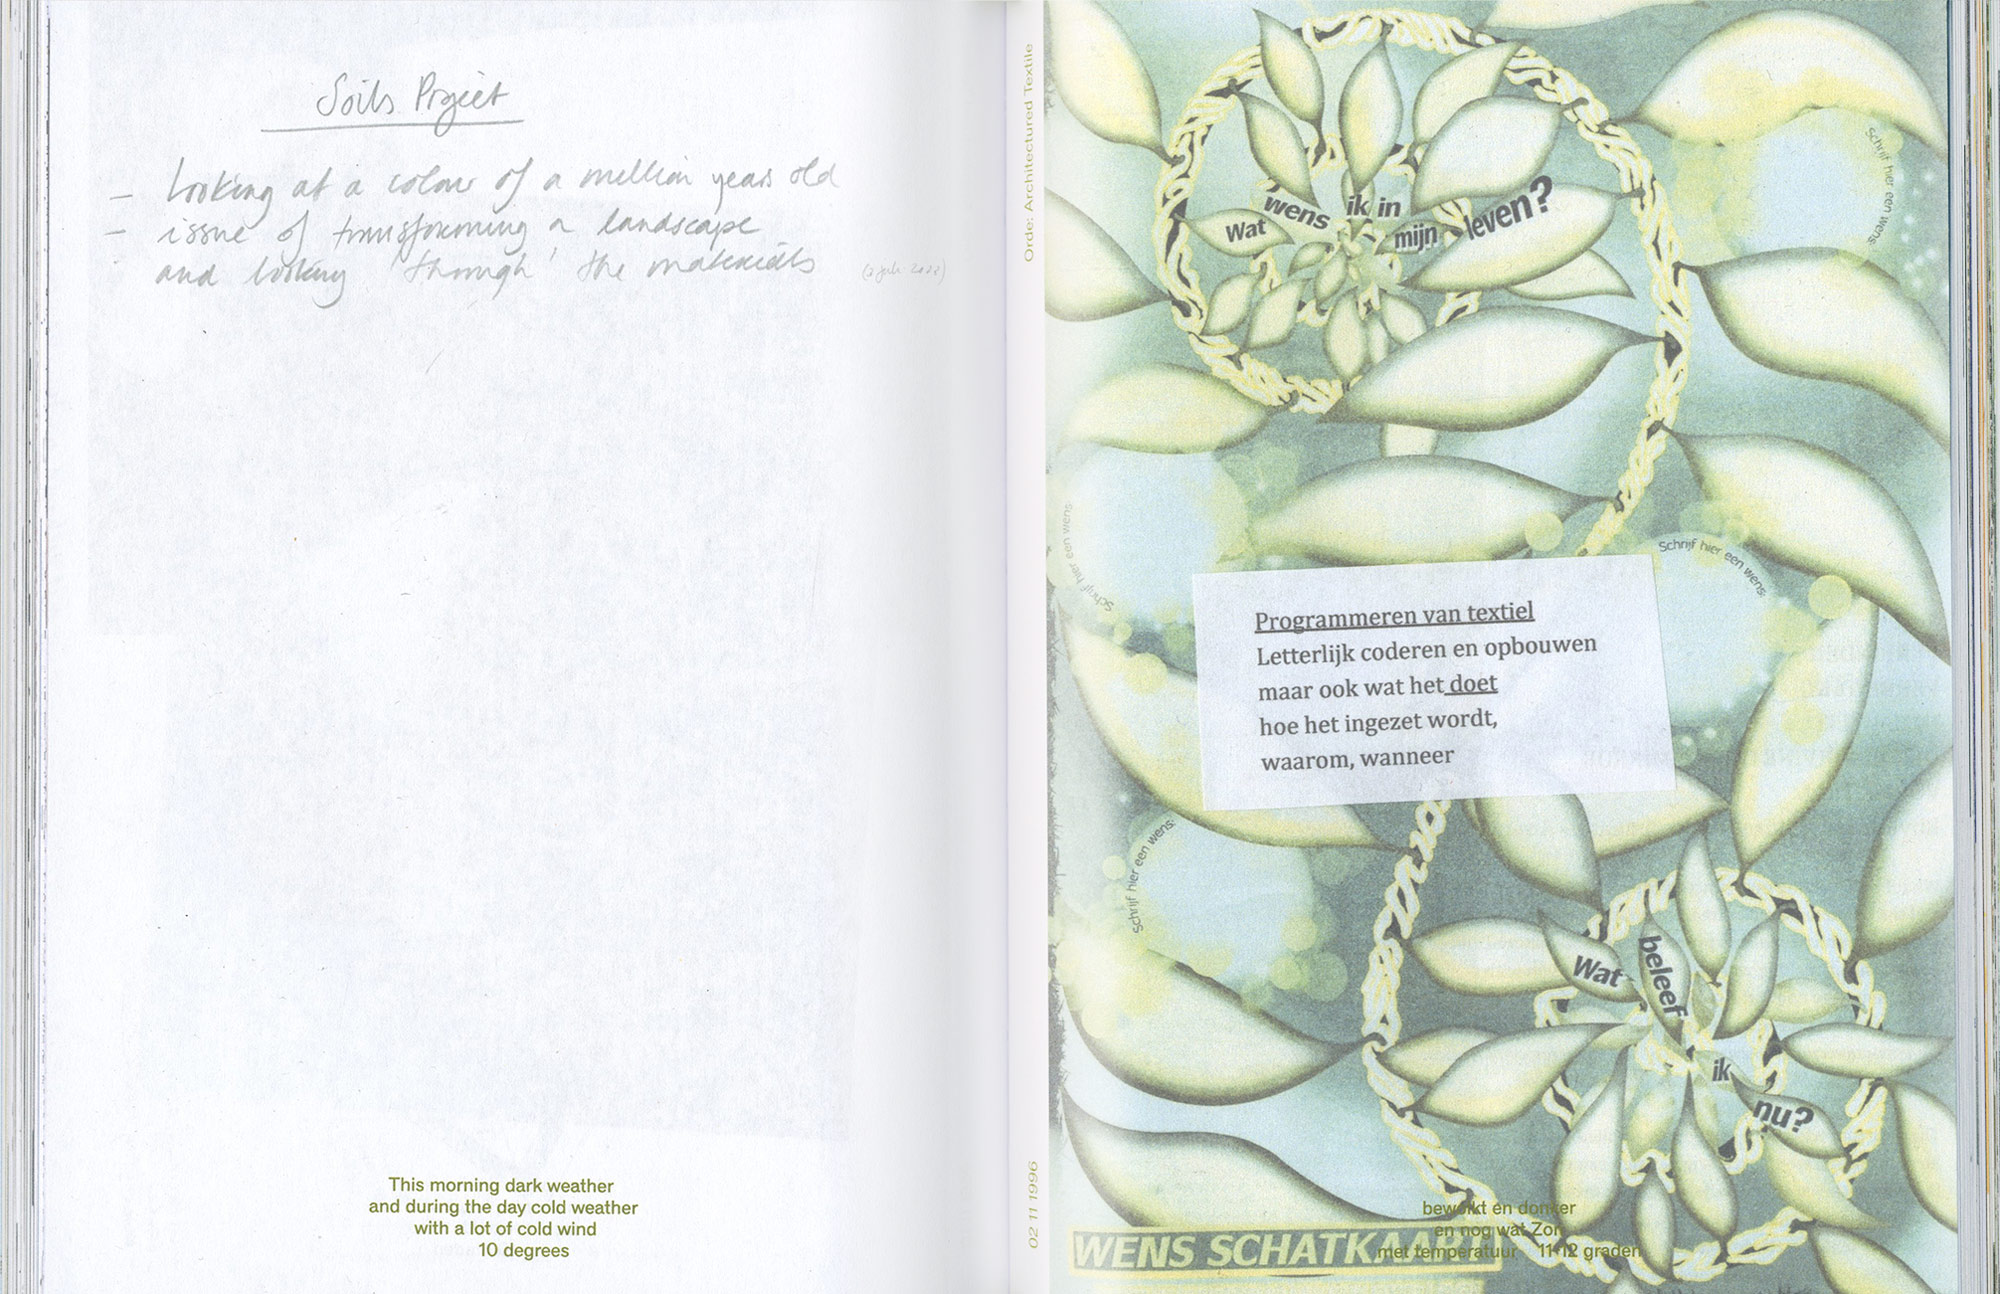 Soils Project
– Looking at a colour of a million years old
– issue of transforming a landscape
and looking 'through' the materials
This morning dark weather
and during the day cold weather
with a lot of cold wind
10 degrees
Orde: Architectured Textile
02 11 1996
Wat wens ik in mijn leven?
Schrijf hier een wens:
Schrijf hier een wens:
Schrijf hier een wens:
Programmeren van textiel
Letterlijk coderen en opbouwen
maar ook wat het doet
hoe het ingezet wordt,
waarom, wanneer
Schrijf hier een wens:
Wat beleef ik nu?
bewolkt en donker
en nog wat Zon
met temperatuur 11-12 graden
WENS SCHATKAART